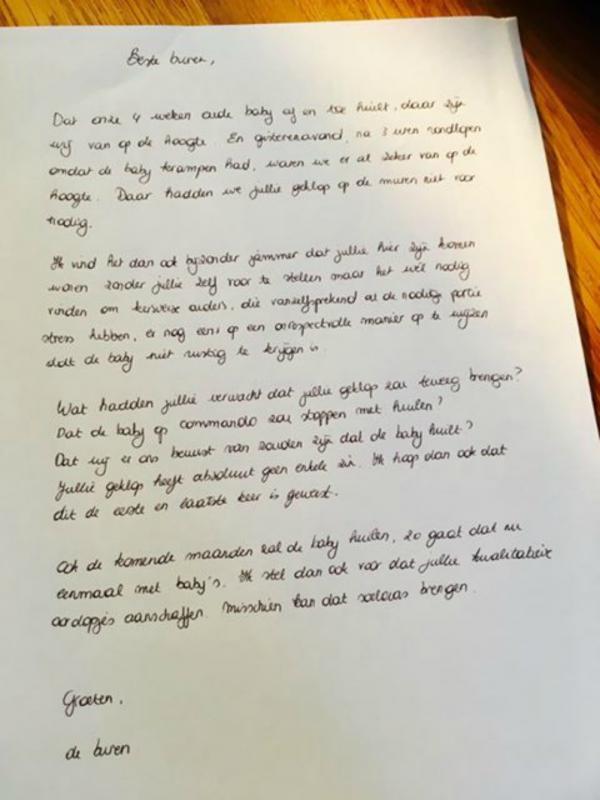 Beste buren,
Dat onze 4 weken oude baby af en toe huilt, daar zijn
wij van op de hoogte. En gisterenavond, na 3 uren rondlopen
omdat de baby krampen had, waren we er al zeker van op de
hoogte. Daar hadden we jullie geklop op de muren niet voor
nodig.
Ik vind het dan ook bijzonder jammer dat jullie hier zijn komen
wonen zonder jullie zelf voor te stellen maar het wél nodig
vinden om kersverse ouders, die vanzelfsprekend al de nodige portie
stress hebben, er nog eens op een onrespectvolle manier op te wijzen
dat de baby niet rustig te krijgen is.
Wat hadden jullie verwacht dat jullie geklop zou teweeg brengen?
Dat de baby op commando zou stoppen met huilen?
Dat wij er ons bewust van zouden zijn dat de baby huilt?
Jullie geklop heeft absoluut geen enkele zin. Ik hoop dan ook dat
dit de eerste en laatste keer is geweest.
Ook de komende maanden zal de baby huilen, zo gaat dat nu
eenmaal met baby's. Ik stel dan ook voor dat jullie kwalitatieve
oordopjes aanschaffen. Misschien kan dat soelaas brengen.
Groeten,
de buren